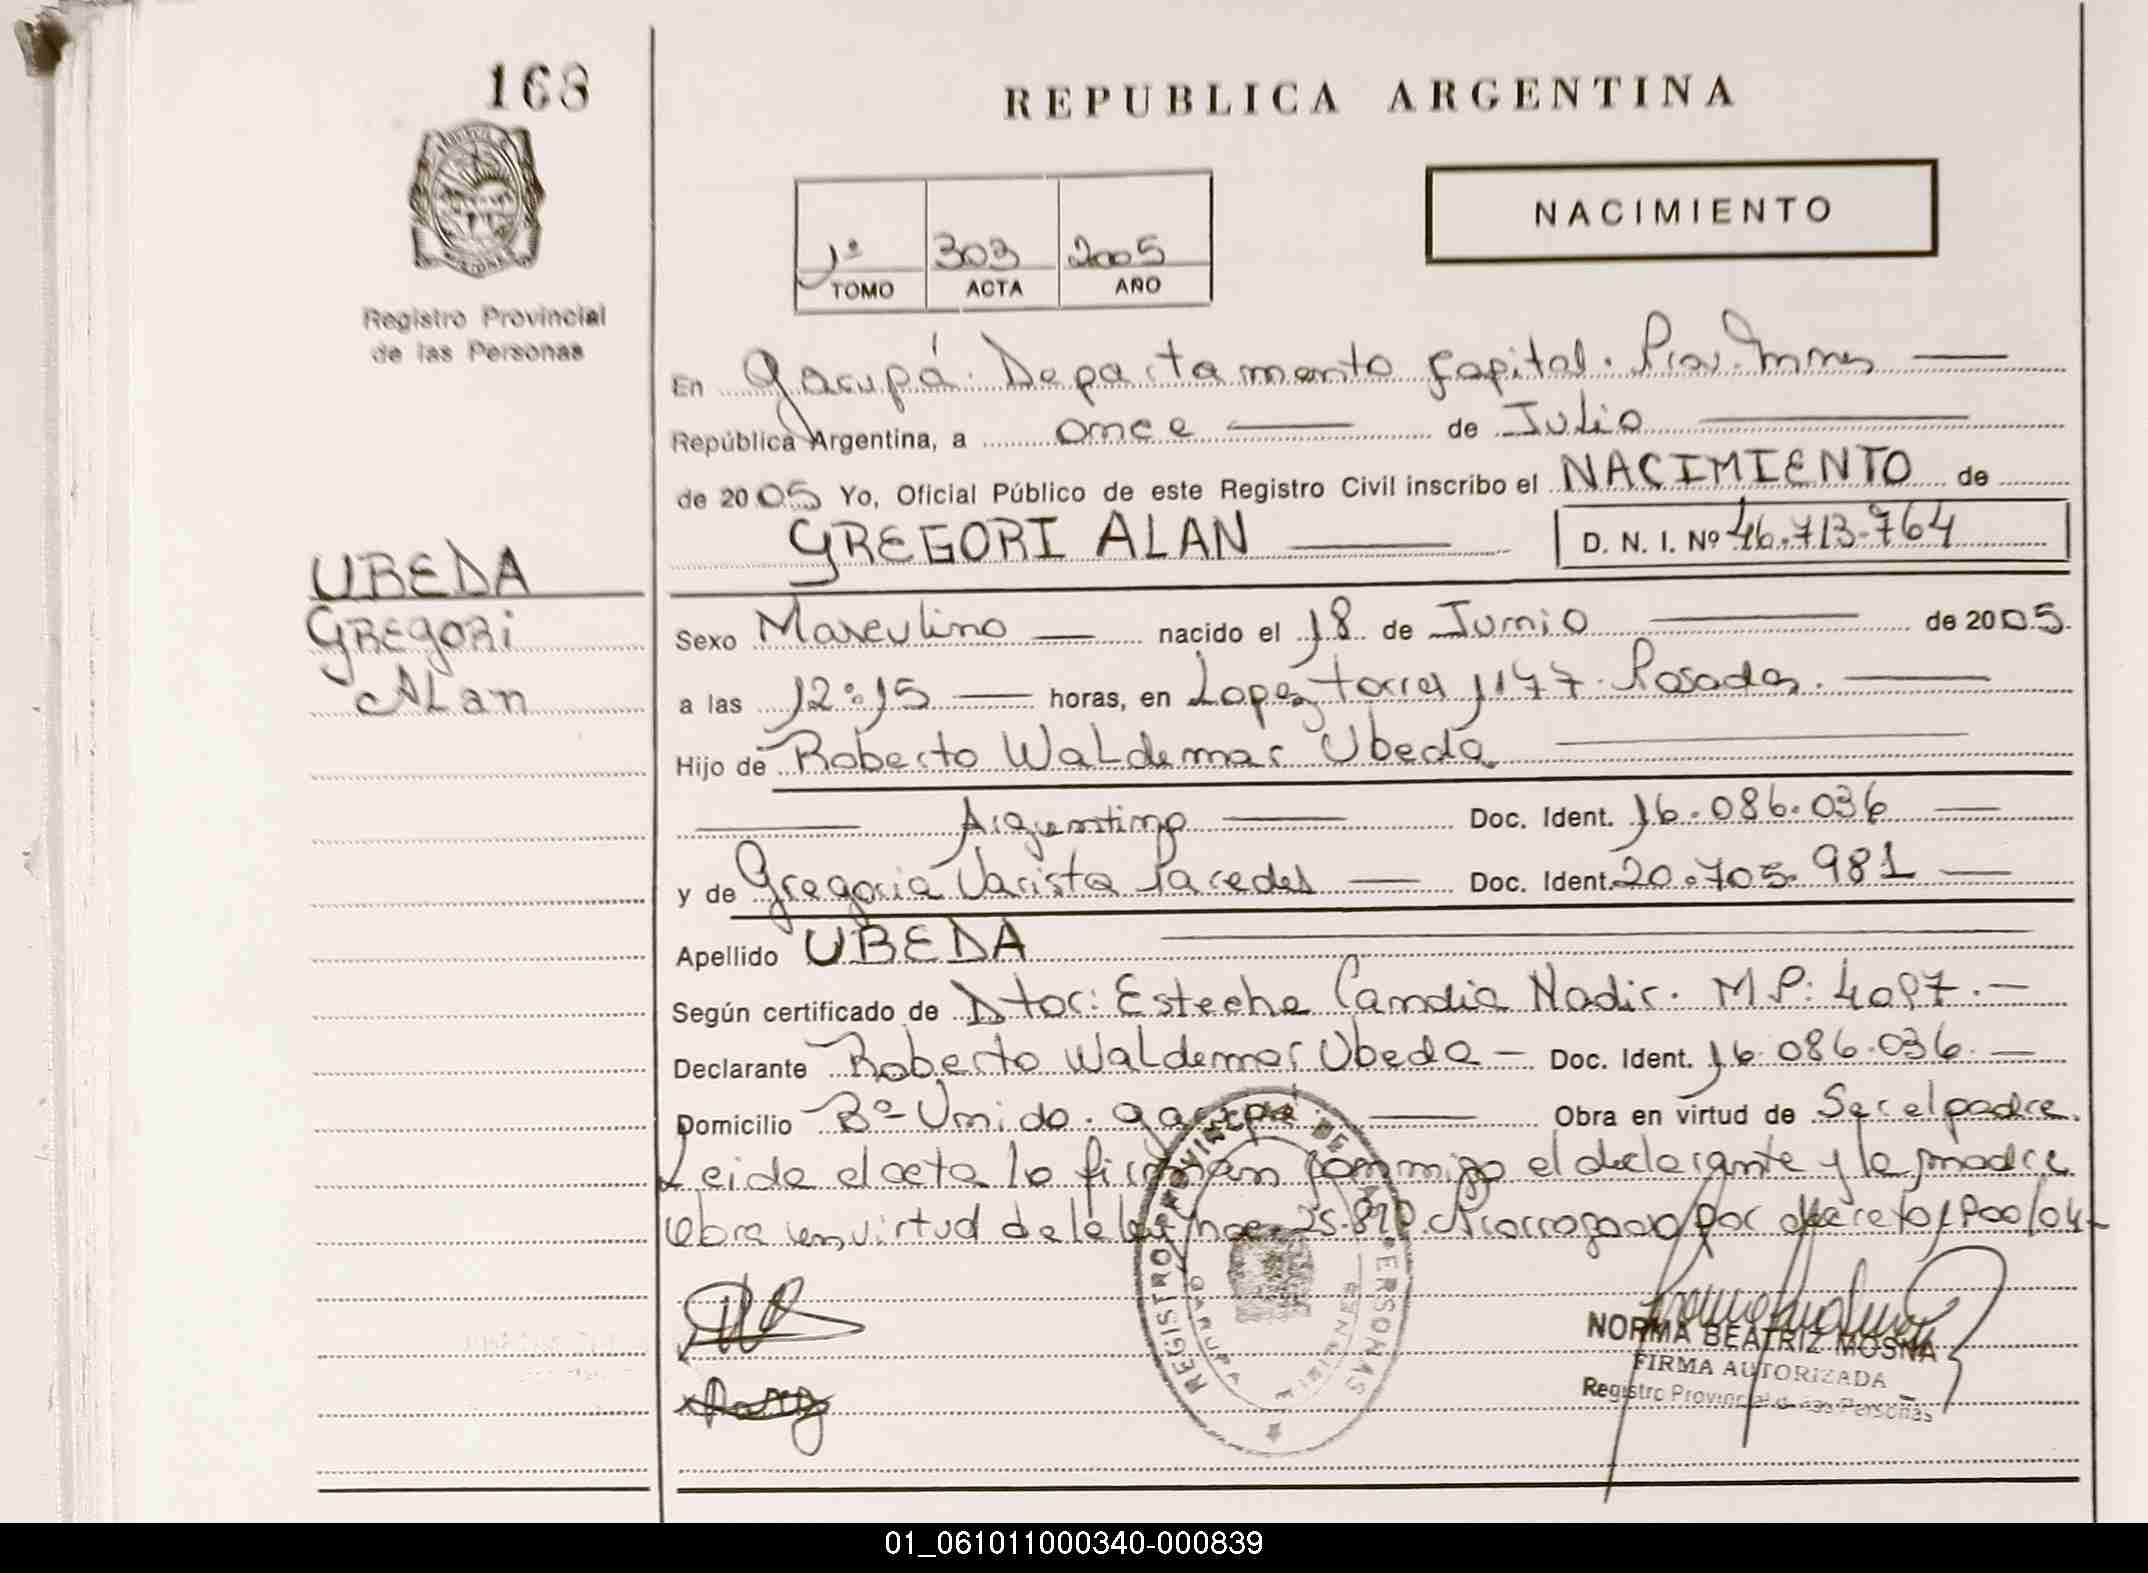 168
REPUBLICA ARGENTINA
NACIMIENTO
1º 303 2005
TOMO ACTA AÑO
Registro Provincial
de las Personas
En Garupá. Departamento Capital. Prov. Mnes
República Argentina, a once de Julio
de 2005 Yo, Oficial Público de este Registro Civil inscribo el NACIMIENTO de
GREGORI ALAN D. N. I. Nº 46.713.764
UBEDA
GREGORi
ALan
Sexo Masculino nacido el 18 de Junio de 2005.
a las 12:15 horas, en Lopez Torres 1177. Posadas.
Hijo de Roberto Waldemar Ubeda
Argentino Doc. Ident. 16.086.036
y de Gregoria Varista Paredes Doc. Ident. 20.705.981
Apellido UBEDA
Según certificado de Dtor: Esteche Candia Nadir. M P:
Declarante Roberto Waldemar Ubeda Doc. Ident. 16.086.036.
Domicilio Bº Unido. Garupá Obra en virtud de Ser el padre.
Leida el acta la firman conmigo el declarante y la madre
Obra en virtud de la ley Prorrogado por decreto
REGISTRO PROVINCIAL DE LAS PERSONAS
GARUPA MISIONES
NORMA BEATRIZ MOSNA
FIRMA AUTORIZADA
Registro Provincial de las Personas
01_061011000340-000839